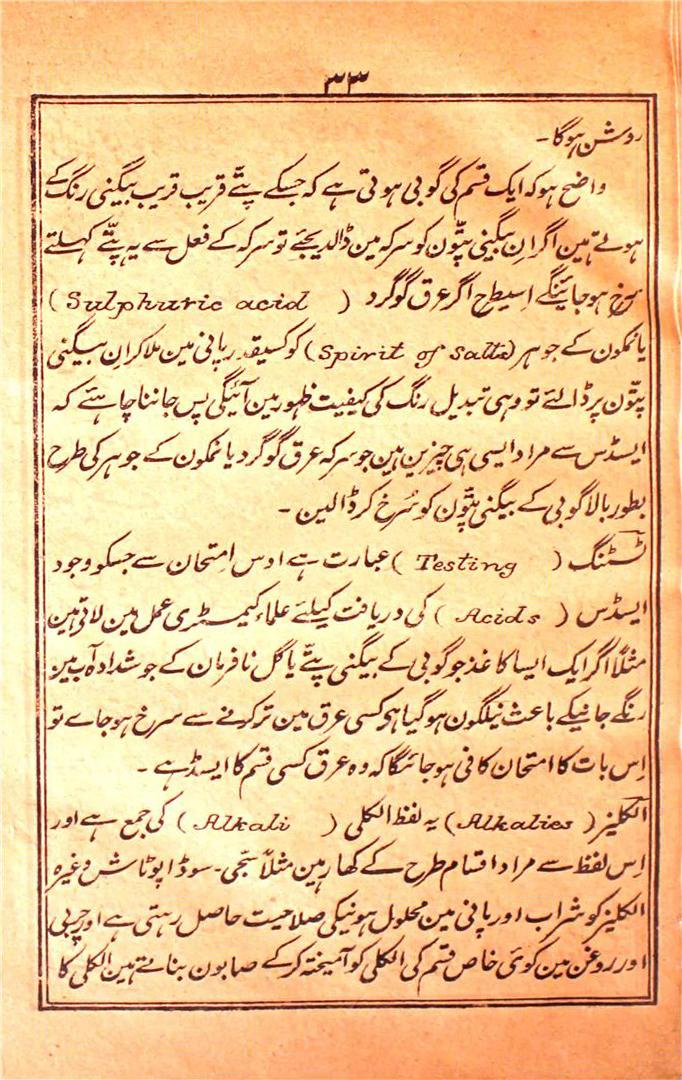 ۳۳
روشن ہوگا۔
واضح ہو کہ ایک قسم کی گوبی ہوتی ہے کہ جسکے پتّے قریب قریب بیگنی رنگ کے
ہوتے ہین اگر اِن بیگنی پتّون کو سرکہ مین ڈالدیجئے تو سرکہ کے فعل سے یہ پتّے کہلتے
سرخ ہو جاینگے اِسیطرح اگر عرق گوگرد (Sulphuric acid)
یا نمکون کے جوہر (Spirit of Salts) کو کسیقدر پانی مین ملاکر اِن بیگنی
پتّون پر ڈالئے تو وہی تبدیل رنگ کی کیفیت ظہور مین آئیگی پس جاننا چاہئے کہ
ایسڈس سے مراد ایسی ہی چیزین ہین جو سرکہ عرق گوگرد یا نمکون کے جوہر کی طرح
بطور بالا گوبی کے بیگنی پتّون کو سُرخ کر ڈالین۔
ٹسٹنگ (Testing) عبارت ہے اوس اِمتحان سے جسکو وجود
ایسڈس (Acids) کی دریافت کیلئے علماء کیمسٹری عمل مین لاتے ہین
مثلاً اگر ایک ایسا کاغذ جو گوبی کے بیگنی پتّے یا گل نافرمان کے جوشدادہ آب مین
رنگے جانیکے باعث نیلگون ہو گیا ہو کسی عرق مین تر کرنے سے سرخ ہو جاے تو
اِس بات کا امتحان کافی ہو جائیگا کہ وہ عرق کسی قسم کا ایسڈ ہے۔
الکلیز (Alkalies) یہ لفظ الکلی (Alkali) کی جمع ہے اور
اِس لفظ سے مراد اقسام طرح کے کھار ہین مثلاً سجّی۔ سوڈا پوٹاش وغیرہ
الکلیز کو شراب اور پانی مین محلول ہونیکی صلاحیت حاصل رہتی ہے اور چربی
اور روغن مین کوئی خاص قسم کی الکلی کو آمیختہ کر کے صابون بناتے ہین الکلی کا